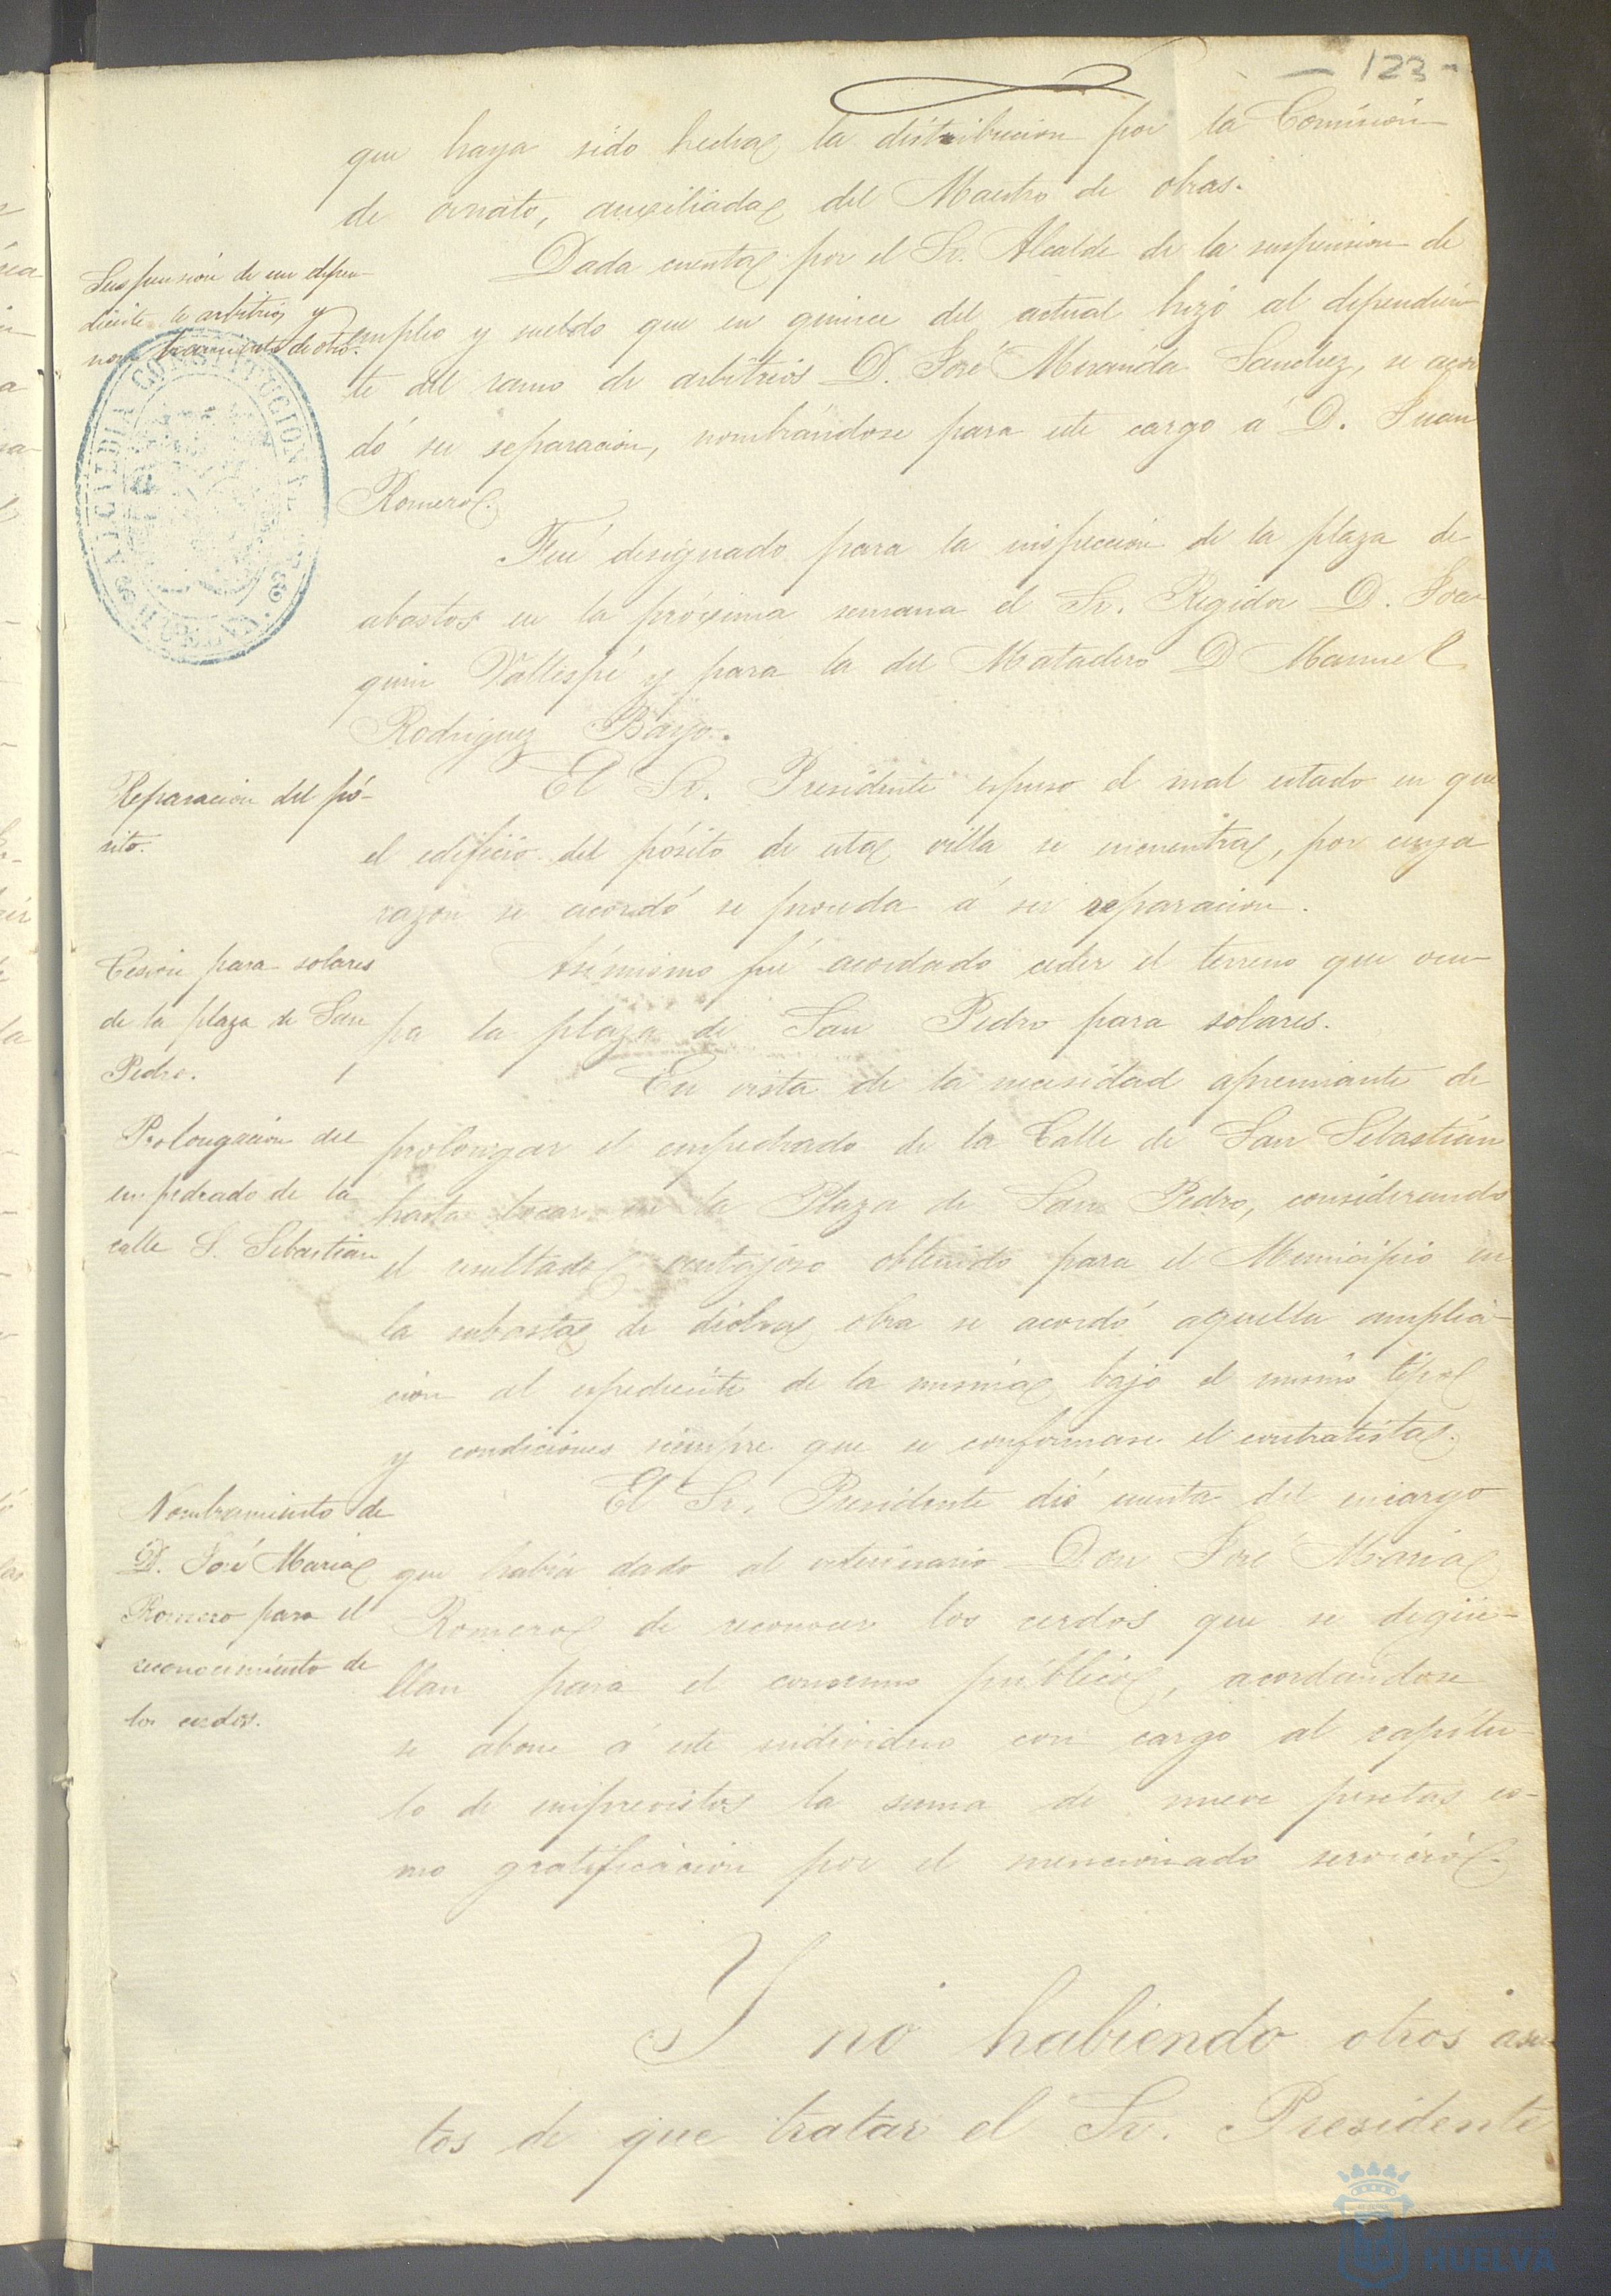 - 123 -
que haya sido hecha la distribucion por la Comisión
de ornato, auxiliada del Maestro de obras.
Suspensión de un depen-
diente de arbitrios y
nombramiento de otro.
Dada cuenta por el Sr. Alcalde de la suspension de
empleo y sueldo que en quince del actual hizo al dependien
te del ramo de arbitrios D. José Miranda Sanchez, se acor
dó su separacion, nombrándose para este cargo á D. Juan
Romero.
ALCALDIA CONSTITUCIONAL DE HUELVA
Fué designado para la inspeccion de la plaza de
abastos en la proxima semana el Sr. Regidor D. Joa-
quin Vallespi y para la del Matadero D Manuel
Rodriguez Bayo.
Reparacion del pó-
sito.
El Sr. Presidente espuso el mal estado en que
el edificio del pósito de esta villa se encuentra, por cuya
razon se acordó se proceda á su reparacion.
Cesion para solares
de la plaza de San
Pedro.
Asimismo fué acordado ceder el terreno que ocu-
pa la plaza de San Pedro para solares.
Prolongacion del
empedrado de la
calle S. Sebastian
En vista de la necesidad apremiante de
prolongar el empedrado de la Calle de San Sebastián
hasta tocar en la Plaza de San Pedro, considerando
el resultado ventajoso obtenido para el Municipio en
la subasta de dicha obra se acordó aquella amplia-
cion al espediente de la misma bajo el mismo tipo
y condiciones siempre que se conformase el contratista.
Nombramiento de
D. José Maria
Romero para el
reconocimiento de
los cerdos.
El Sr. Presidente dió cuenta del encargo
que habia dado al veterinario Don José Maria
Romero de reconocer los cerdos que se degüe-
llan para el consumo público, acordandose
se abone á este individuo con cargo al capítu-
lo de imprevistos la suma de nueve pesetas co-
mo gratificacion por el mencionado servicio.
Y no habiendo otros asun
tos de que tratar el Sr. Presidente
HUELVA